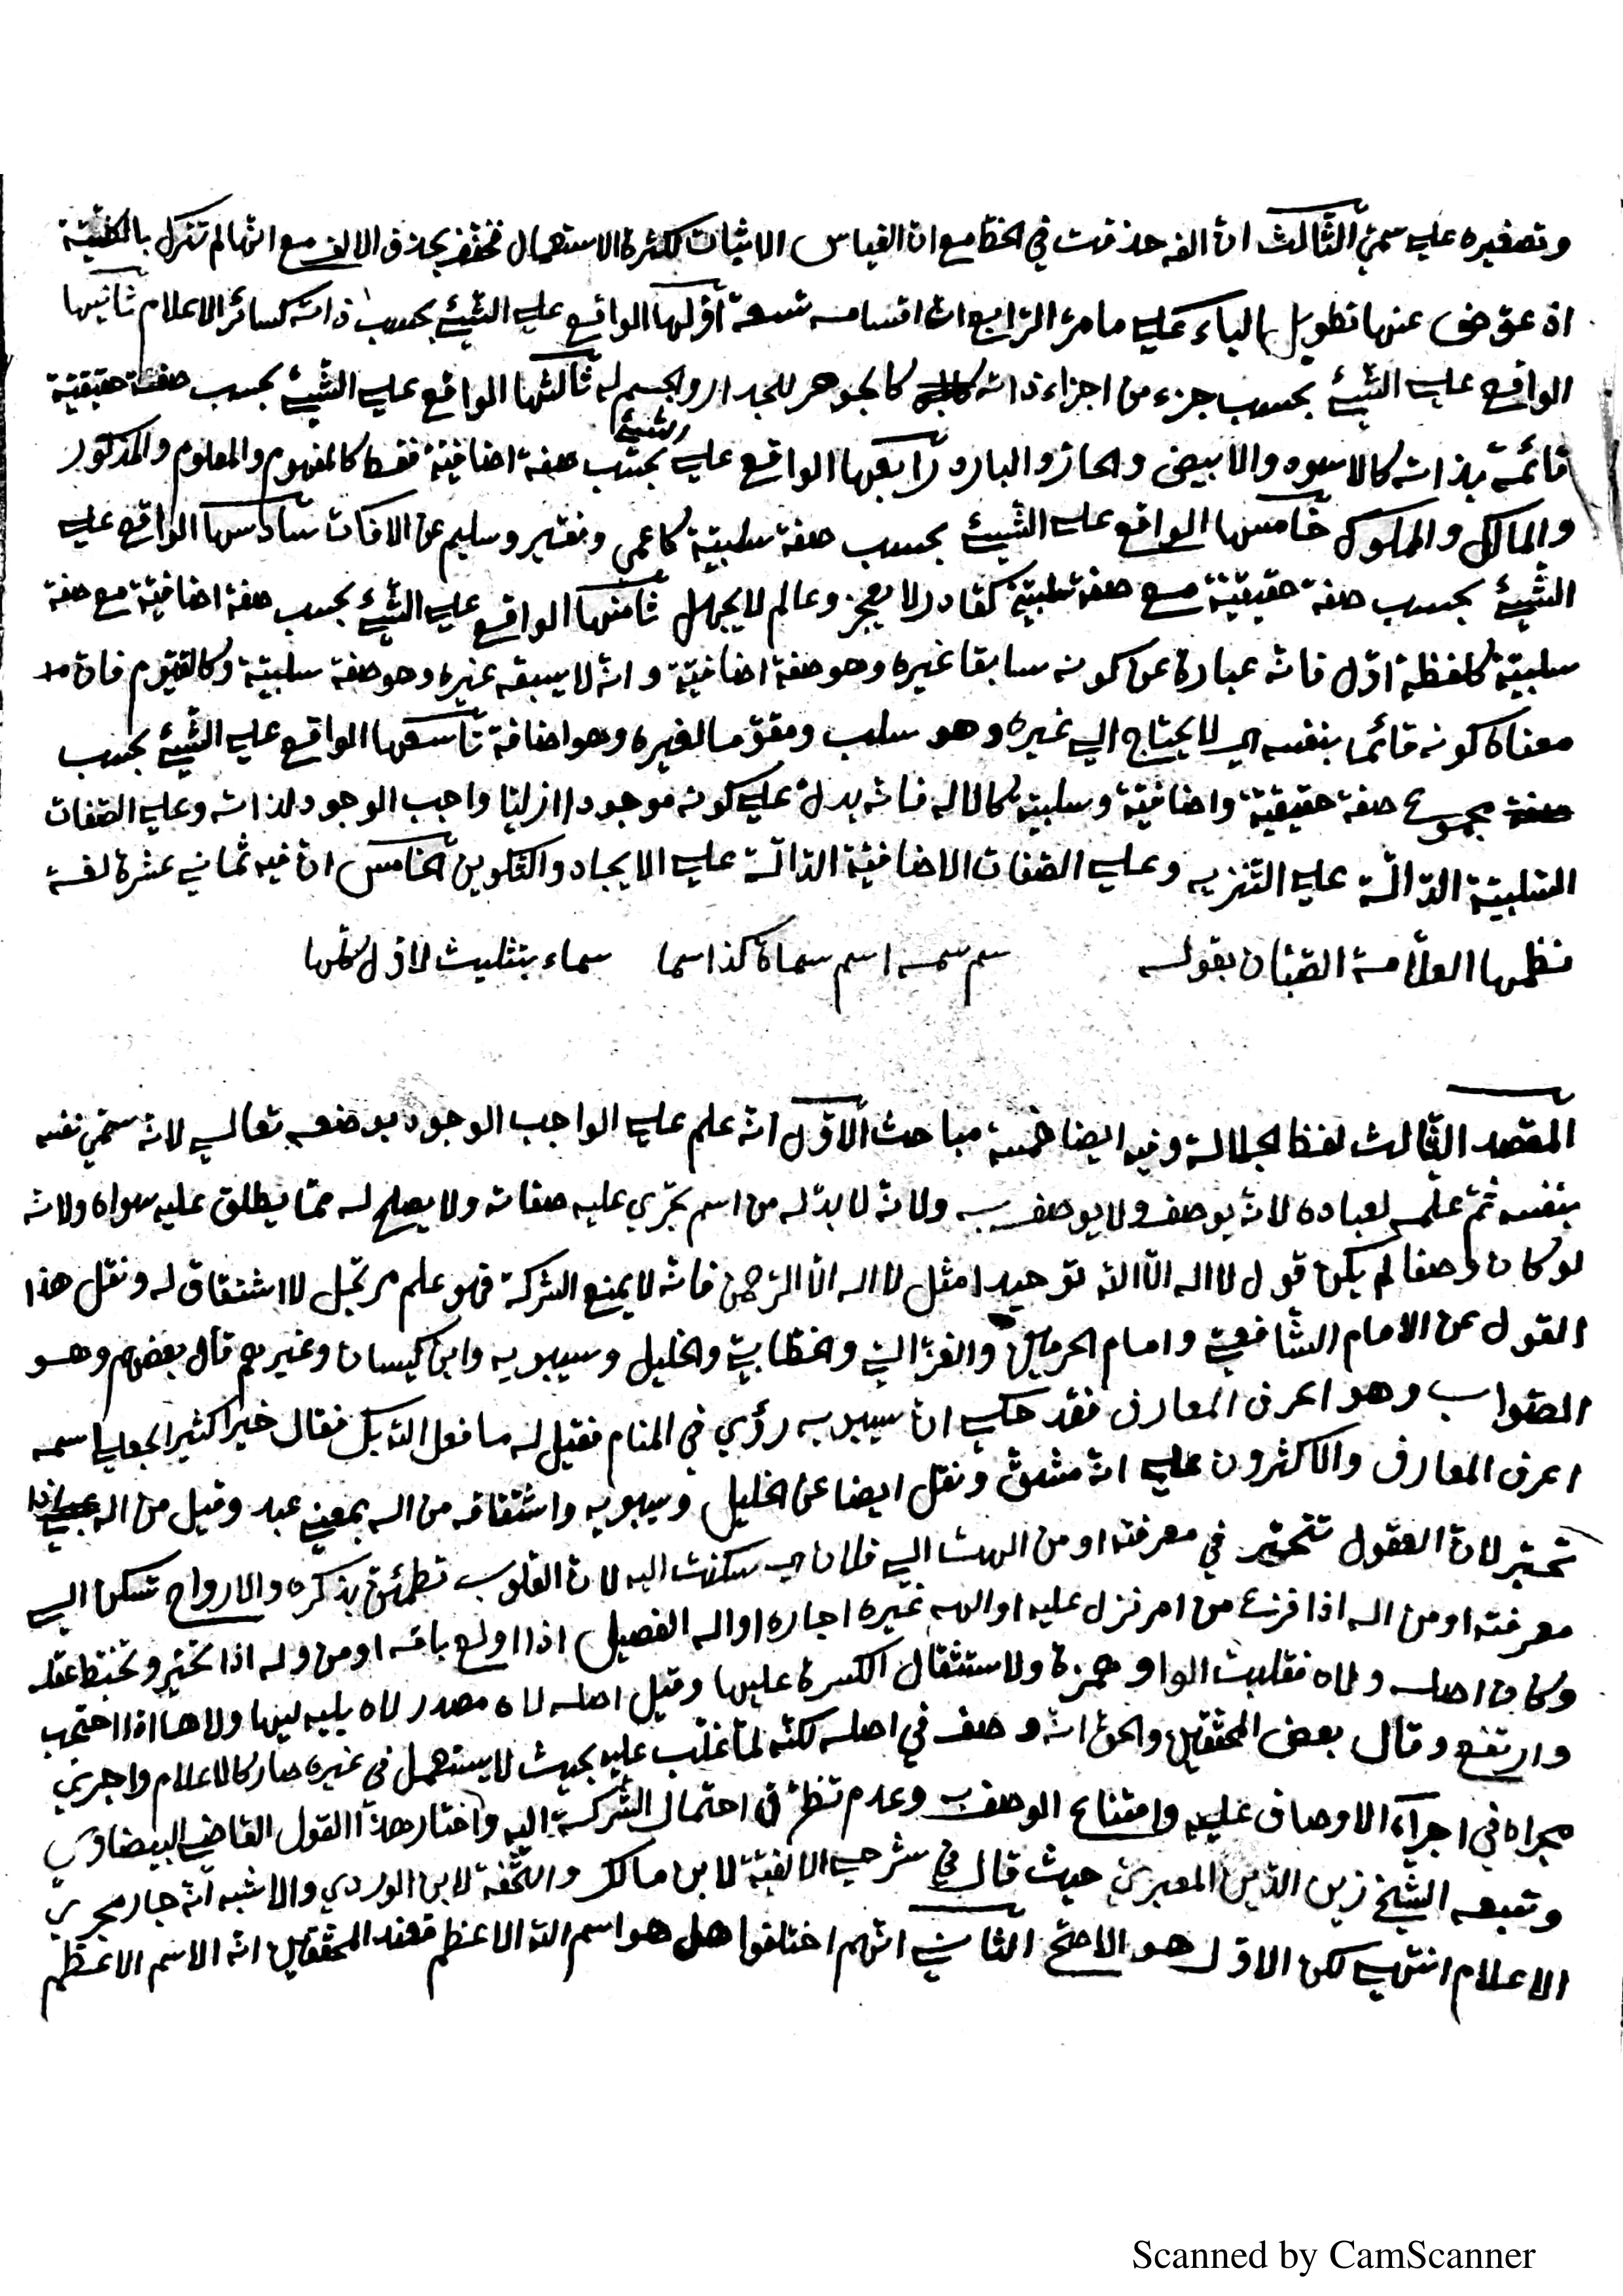 وتصغيره على سميّ الثّالث انّ الفه حذفت في الخطّ مع انّ القياس الاثبات لكثرة الاستعمال فخفّف بحذف الالف مع انّها لم تترك بالكليّة
اذ عوّض عنها تطويل الباء على ما مرّ الرّابع انّ اقسامه تسعة اوّلها الواقع على الشّيئ بحسب ذاته كسائر الاعلام ثانيها
الواقع على الشّيئ بحسب جزء من اجزاء ذاته كالجوهر للجدار والجسم له ثالثها الواقع على الشّيئ بحسب صفة حقيقيّة
قائمة بذاته كالاسود والابيض والحارّ والبارد رابعها الواقع على الشيئ بحسب صفة اضافيّة فقط كالمفهوم والمعلوم والمذكور
والمالك والمملوك خامسها الواقع على الشّيئ بحسب صفة سلبيّة كاعمى وفقير وسليم عن الافات سادسها الواقع على
الشّيئ بحسب صفة حقيقيّة مع صفة سلبيّة كقادر لا يعجز وعالم لا يجهل ثامنها الواقع على الشّيئ بحسب صفة اضافيّة مع صفة
سلبيّة كلفظة اوّل فانّه عبارة عن كونه سابقا غيره وهو صفة اضافيّة وانّه لا يسبقه غيره وهو صفة سلبيّة وكالقيّوم فانّ
معناه كونه قائما بنفسه اي لا يحتاج الى غيره وهو سلب ومقوّما لغيره وهو اضافة تاسعها الواقع على الشّيئ بحسب
مجموع صفة حقيقيّة واضافيّة وسلبيّة كالاله فانّه يدلّ على كونه موجودا ازليّا واجب الوجود لذاته وعلى الصّفات
السّلبيّة الدّالّة على التّنزيه وعلى الصّفات الاضافيّة الدّالّة على الايجاد والتّكوين الخامس انّ فيه ثماني عشرة لغة
نظمها العلّامة الصّبّان بقوله سم سمه اسم سماة كذا سما سماء بتثليث لاوّل كلّها
المقصد الثّالث لفظ الجلالة وفيه ايضا خمسة مباحث الاوّل انّه علم على الواجب الوجود بوضعه تعالى لانّه سمّى نفسه
بنفسه ثمّ علّمه لعباده لانّه يوصف ولا يوصف به ولانّه لا بدّ له من اسم تجري عليه صفاته ولا يصلح له ممّا يطلق عليه سواه ولانّه
لو كان وصفا لم يكن قول لا اله الّا اللّه توحيدا مثل لا اله الّا الرّحمن فانّه لا يمنع الشركة فهو علم مرتجل لا اشتقاق له ونقل هذا
القول عن الامام الشّافعيّ وامام الحرمين والغزاليّ والخطّابيّ والخليل وسيبويه وابن كيسان وغيرهم قال بعضهم وهو
الصّواب وهو اعرف المعارف فقد حكي انّ سيبويه رؤي في المنام فقيل له ما فعل اللّه بك فقال خيرا كثيرا لجعلي اسمه
اعرف المعارف والاكثرون على انّه مشتقّ ونقل ايضا عن الخليل وسيبويه واشتقاقه من اله بمعنى عبد وقيل من اله اذا
تحيّر لانّ العقول تتحيّر في معرفته او من الهت الى فلان اي سكنت اليه لانّ القلوب تطمئنّ بذكره والارواح تسكن الى
معرفته او من اله اذا فزع من امر نزل عليه او الهه غيره اجاره او اله الفصيل اذا اولع بامّه او من وله اذا تحيّر وتخبّط عقله
وكان اصله ولاه فقلبت الواو همزة ولاستثقال الكسرة عليها وقيل اصله لاه مصدر لاه يليه ليها ولاها اذا احتجب
وارتفع وقال بعض المحقّقين والحقّ انّه وصف في اصله لكنّه لمّا غلب عليه بحيث لا يستعمل في غيره صار كالاعلام واجري
مجراه في اجراء الاوصاف عليه وامتناع الوصف به وعدم تطرّق احتمال الشّركة اليه واختار هذا القول القاضي البيضاوي
وتبعه الشّيخ زين الدّين المعبريّ حيث قال في شرحي الالفيّة لابن مالك والتّحفة لابن الوردي والاشبه انّه جار مجرى
الاعلام انتهى لكن الاوّل هو الاصحّ الثّاني انّهم اختلفوا هل هو اسم اللّه الاعظم فعند المحقّقين انّه الاسم الاعظم
Scanned by CamScanner